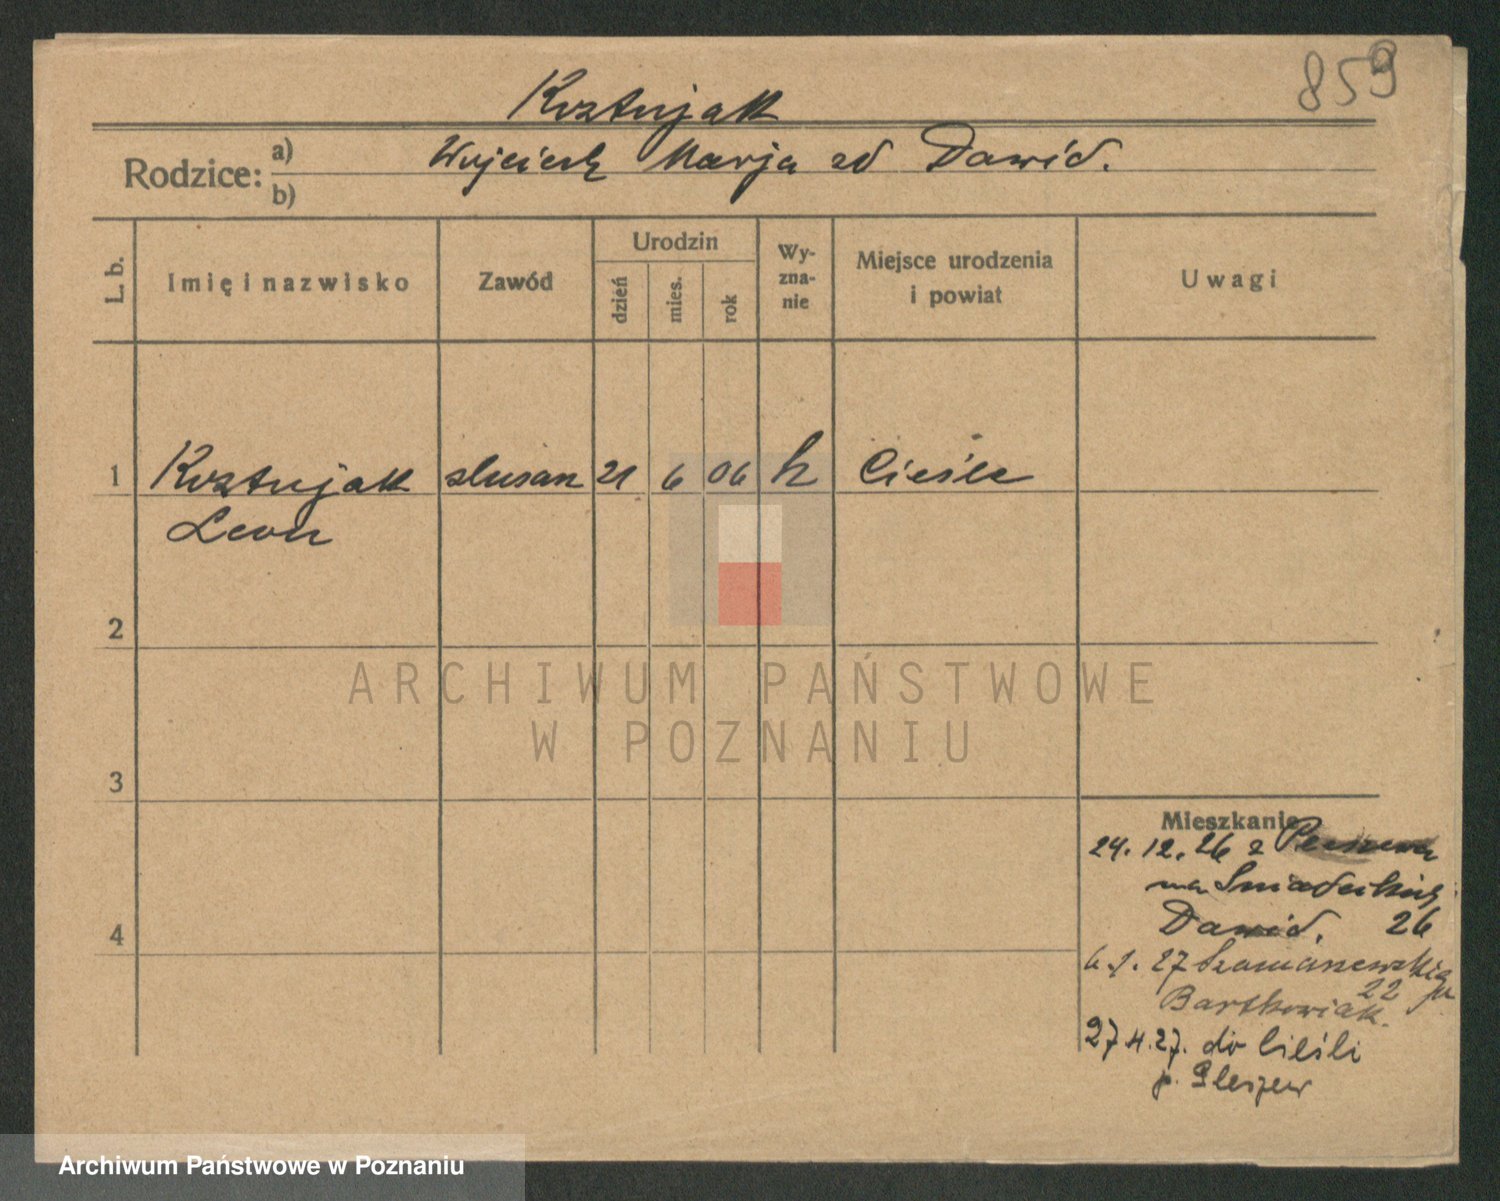 859
Kostujak
Rodzice: a) Wojciech Marja zd Dawid.
b)
L. b.
Imię i nazwisko
Zawód
Urodzin
dzień
mies.
rok
Wy-
zna-
nie
Miejsce urodzenia
i powiat
Uwagi
1 Kostujak ślusarz 21 6 06 k Cieśle
Leon
2
3
4
Mieszkanie
24. 12. 26 z
na Śniadeckich
Dawid. 26
6.1. 27 Szamarzewskiego
22
Bartkowiak.
27.4.27. do Cieśli
p. Pleszew
ARCHIWUM PAŃSTWOWE
W POZNANIU
Archiwum Państwowe w Poznaniu